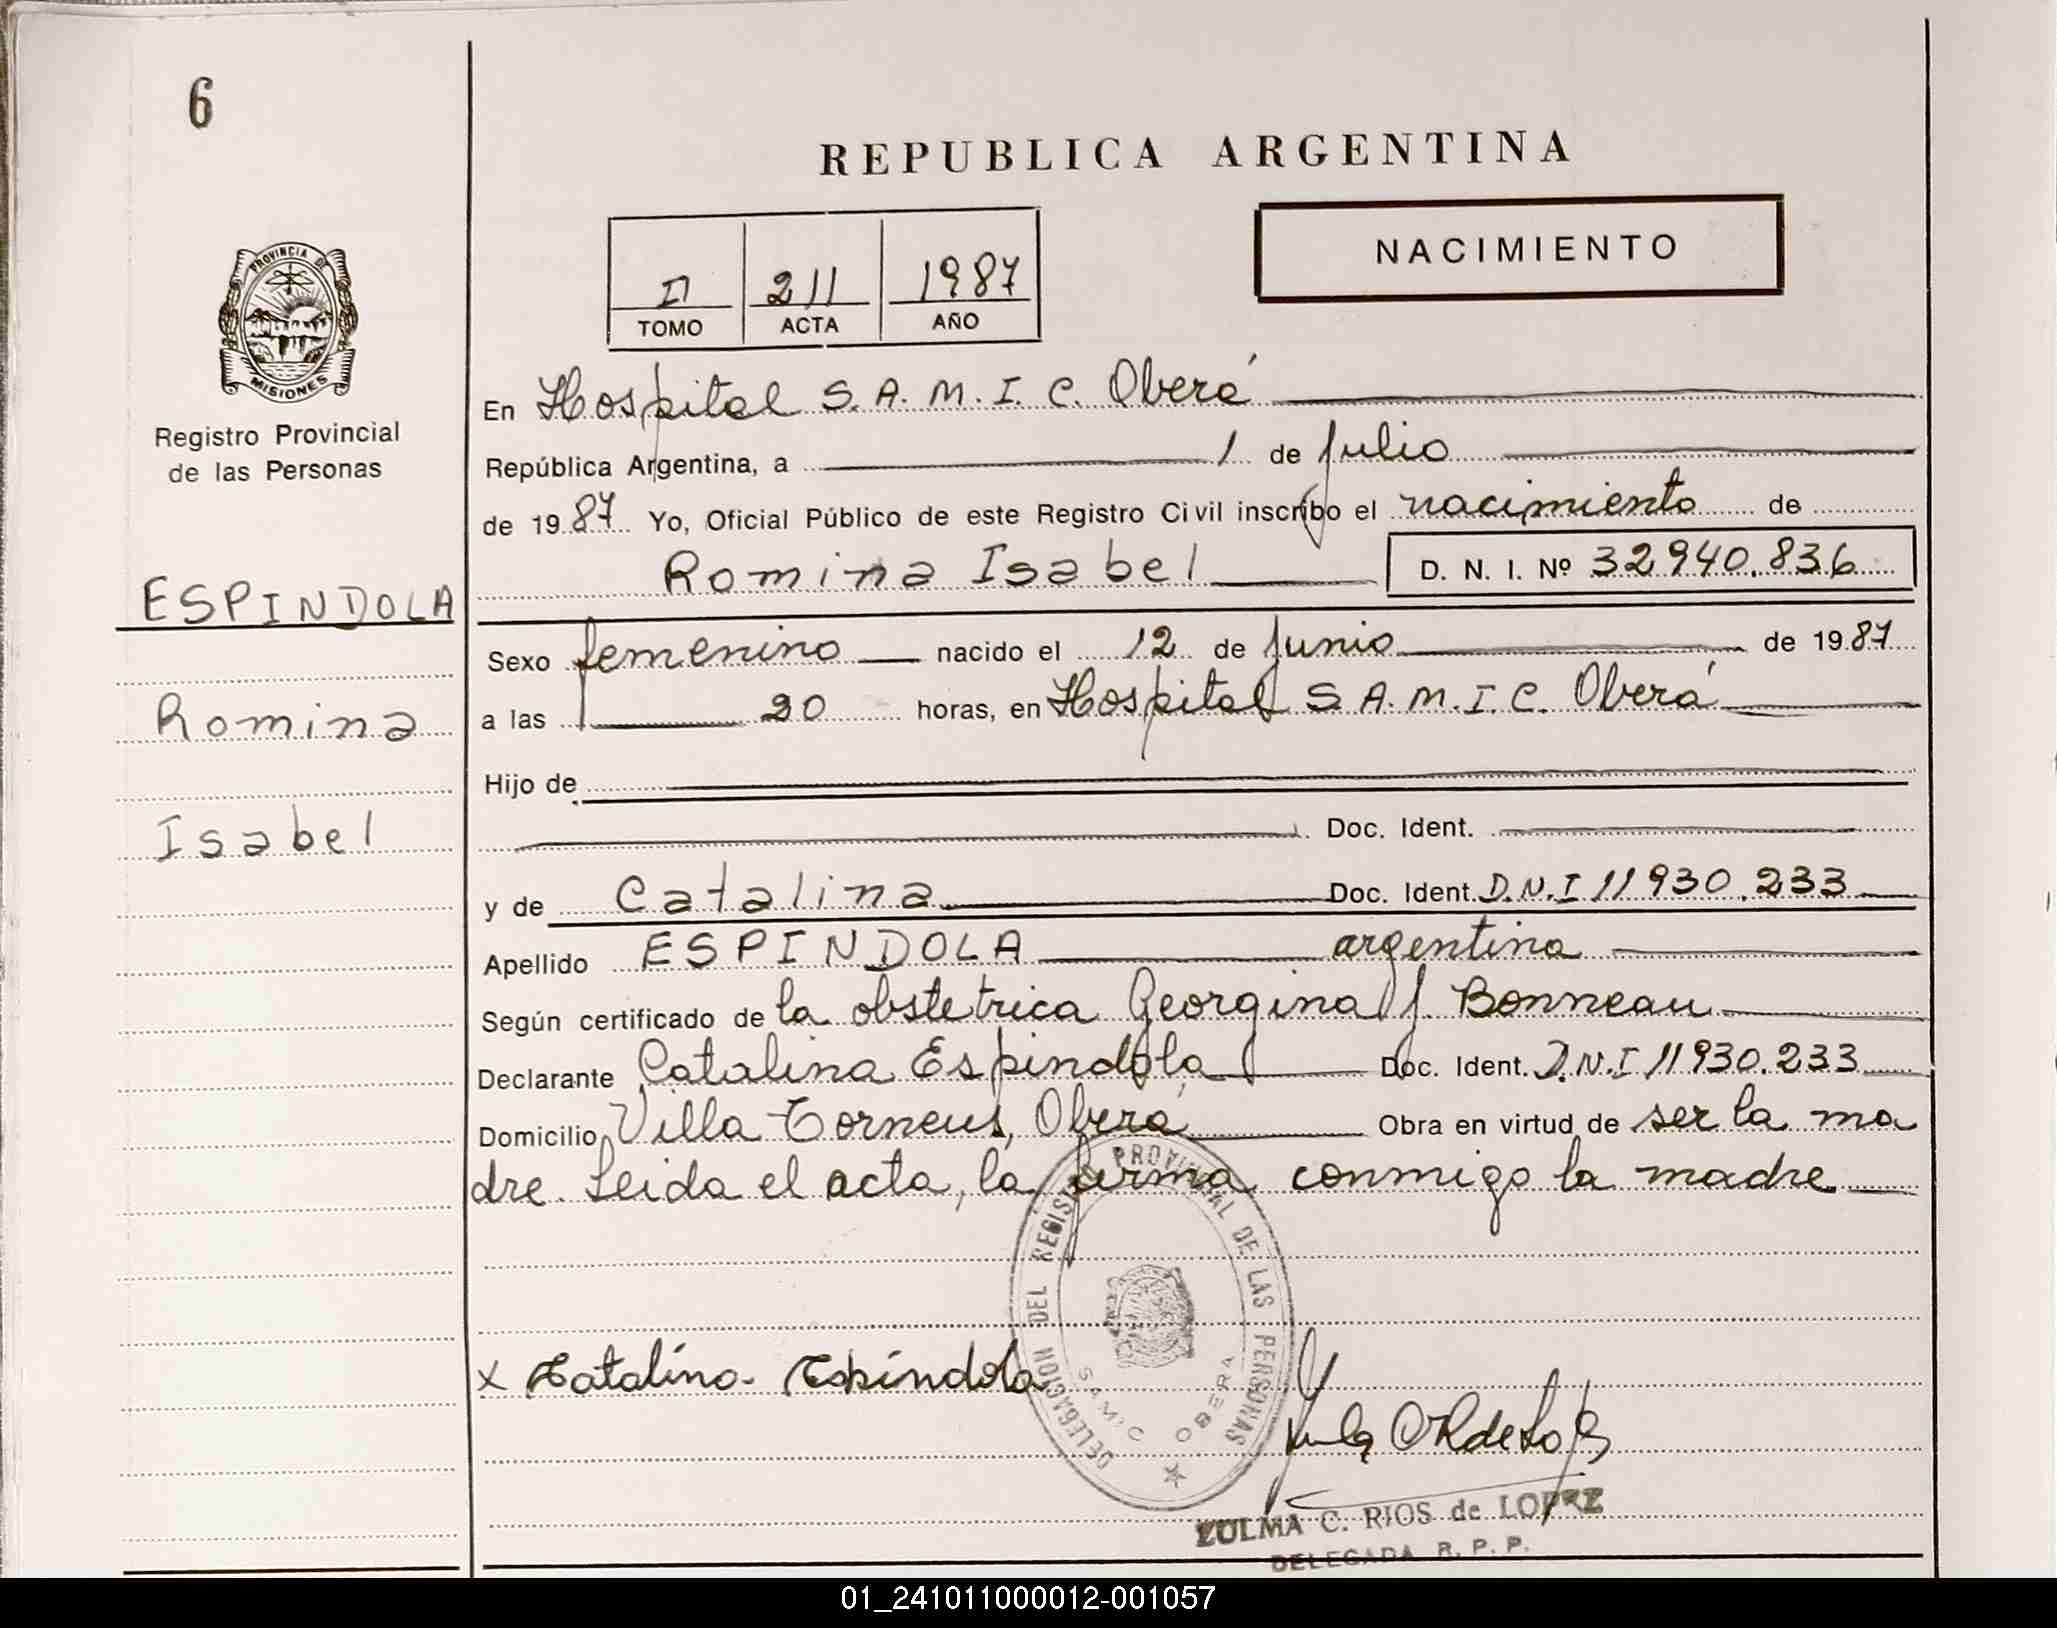 6
REPUBLICA ARGENTINA
NACIMIENTO
II 211 1987
TOMO ACTA AÑO
PROVINCIA DE
MISIONES
Registro Provincial
de las Personas
ESPINDOLA
Romina
Isabel
En Hospital S.A.M.I.C. Oberá
República Argentina, a 1 de julio
de 1987 Yo, Oficial Público de este Registro Civil inscribo el nacimiento de
Romina Isabel D. N. I. Nº 32940.836
Sexo femenino nacido el 12 de junio de 1987
a las 20 horas, en Hospital S.A.M.I.C. Oberá
Hijo de
Doc. Ident.
y de Catalina Doc. Ident. D.N.I 11930.233
Apellido ESPINDOLA argentina
Según certificado de la obstetrica Georgina J. Bonneau
Declarante Catalina Espindola Doc. Ident. D.N.I 11930.233
Domicilio Villa Torneus, Oberá Obra en virtud de ser la ma
dre. Leida el acta, la firma conmigo la madre
DELEGACION DEL REGISTRO PROVINCIAL DE LAS PERSONAS
SAMIC OBERA
x Catalina Espindola
ZULMA C. RIOS de LOPEZ
DELEGADA R. P. P.
01_241011000012-001057